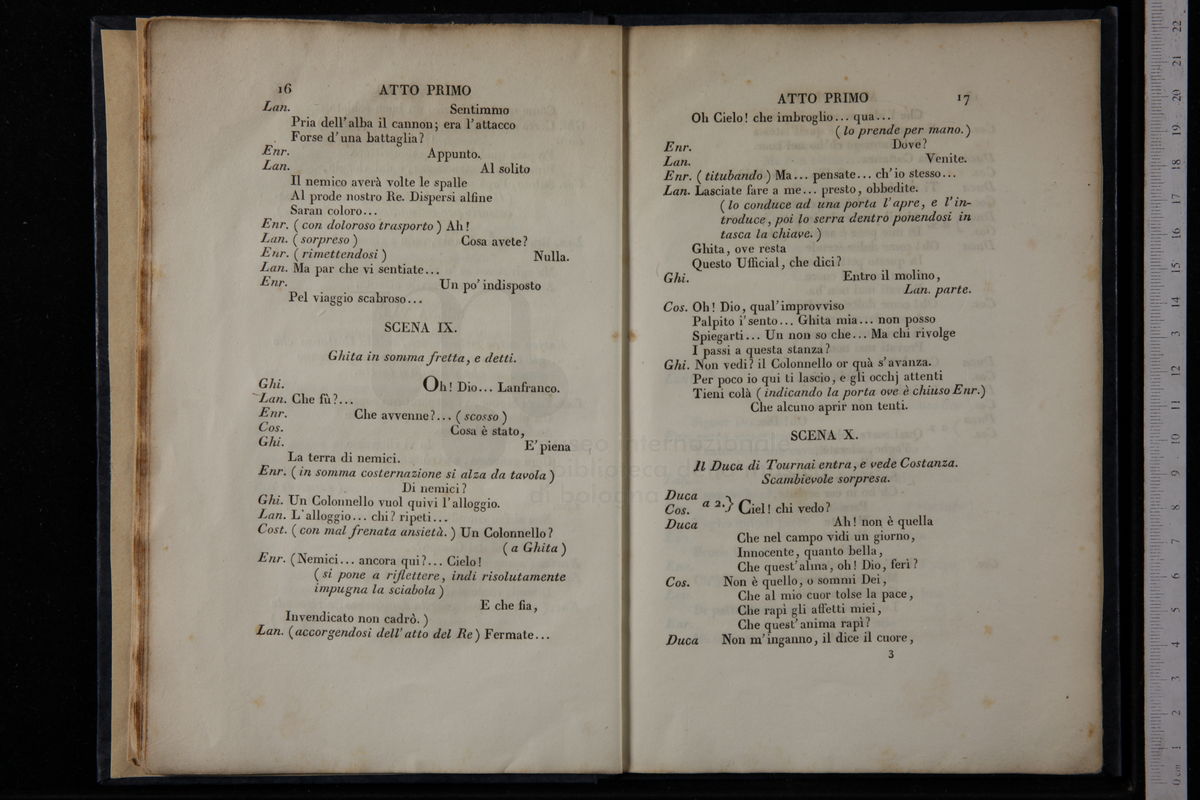 16 ATTO PRIMO
Lan. Sentimmo
Pria dell'alba il cannon; era l'attacco
Forse d'una battaglia?
Enr. Appunto.
Lan. Al solito
Il nemico averà volte le spalle
Al prode nostro Re. Dispersi alfine
Saran coloro...
Enr. ( con doloroso trasporto ) Ah!
Lan. ( sorpreso ) Cosa avete?
Enr. ( rimettendosi ) Nulla.
Lan. Ma par che vi sentiate...
Enr. Un po' indisposto
Pel viaggio scabroso...
SCENA IX.
Ghita in somma fretta, e detti.
Ghi. Oh! Dio... Lanfranco.
Lan. Che fù?...
Enr. Che avvenne?... ( scosso )
Cos. Cosa è stato,
Ghi. E' piena
La terra di nemici.
Enr. ( in somma costernazione si alza da tavola )
Di nemici?
Ghi. Un Colonnello vuol quivi l'alloggio.
Lan. L'alloggio... chi? ripeti...
Cost. ( con mal frenata ansietà. ) Un Colonnello?
( a Ghita )
Enr. (Nemici... ancora qui?... Cielo!
( si pone a riflettere, indi risolutamente
impugna la sciabola )
E che fia,
Invendicato non cadrò. )
Lan. (accorgendosi dell'atto del Re) Fermate...
ATTO PRIMO 17
Oh Cielo! che imbroglio... qua...
( lo prende per mano. )
Enr. Dove?
Lan. Venite.
Enr. ( titubando ) Ma... pensate... ch'io stesso...
Lan. Lasciate fare a me... presto, obbedite.
( lo conduce ad una porta l'apre, e l'in-
troduce, poi lo serra dentro ponendosi in
tasca la chiave. )
Ghita, ove resta
Questo Ufficial, che dici?
Ghi. Entro il molino,
Lan. parte.
Cos. Oh! Dio, qual'improvviso
Palpito i'sento... Ghita mia... non posso
Spiegarti... Un non so che... Ma chi rivolge
I passi a questa stanza?
Ghi. Non vedi? il Colonnello or quà s'avanza.
Per poco io qui ti lascio, e gli occhj attenti
Tieni colà ( indicando la porta ove è chiuso Enr.)
Che alcuno aprir non tenti.
SCENA X.
Il Duca di Tournai entra, e vede Costanza.
Scambievole sorpresa.
Duca
Cos. a 2.} Ciel! chi vedo?
Duca Ah! non è quella
Che nel campo vidi un giorno,
Innocente, quanto bella,
Che quest'alma, oh! Dio, ferì?
Cos. Non è quello, o sommi Dei,
Che al mio cuor tolse la pace,
Che rapì gli affetti miei,
Che quest'anima rapì?
Duca Non m'inganno, il dice il cuore,
3